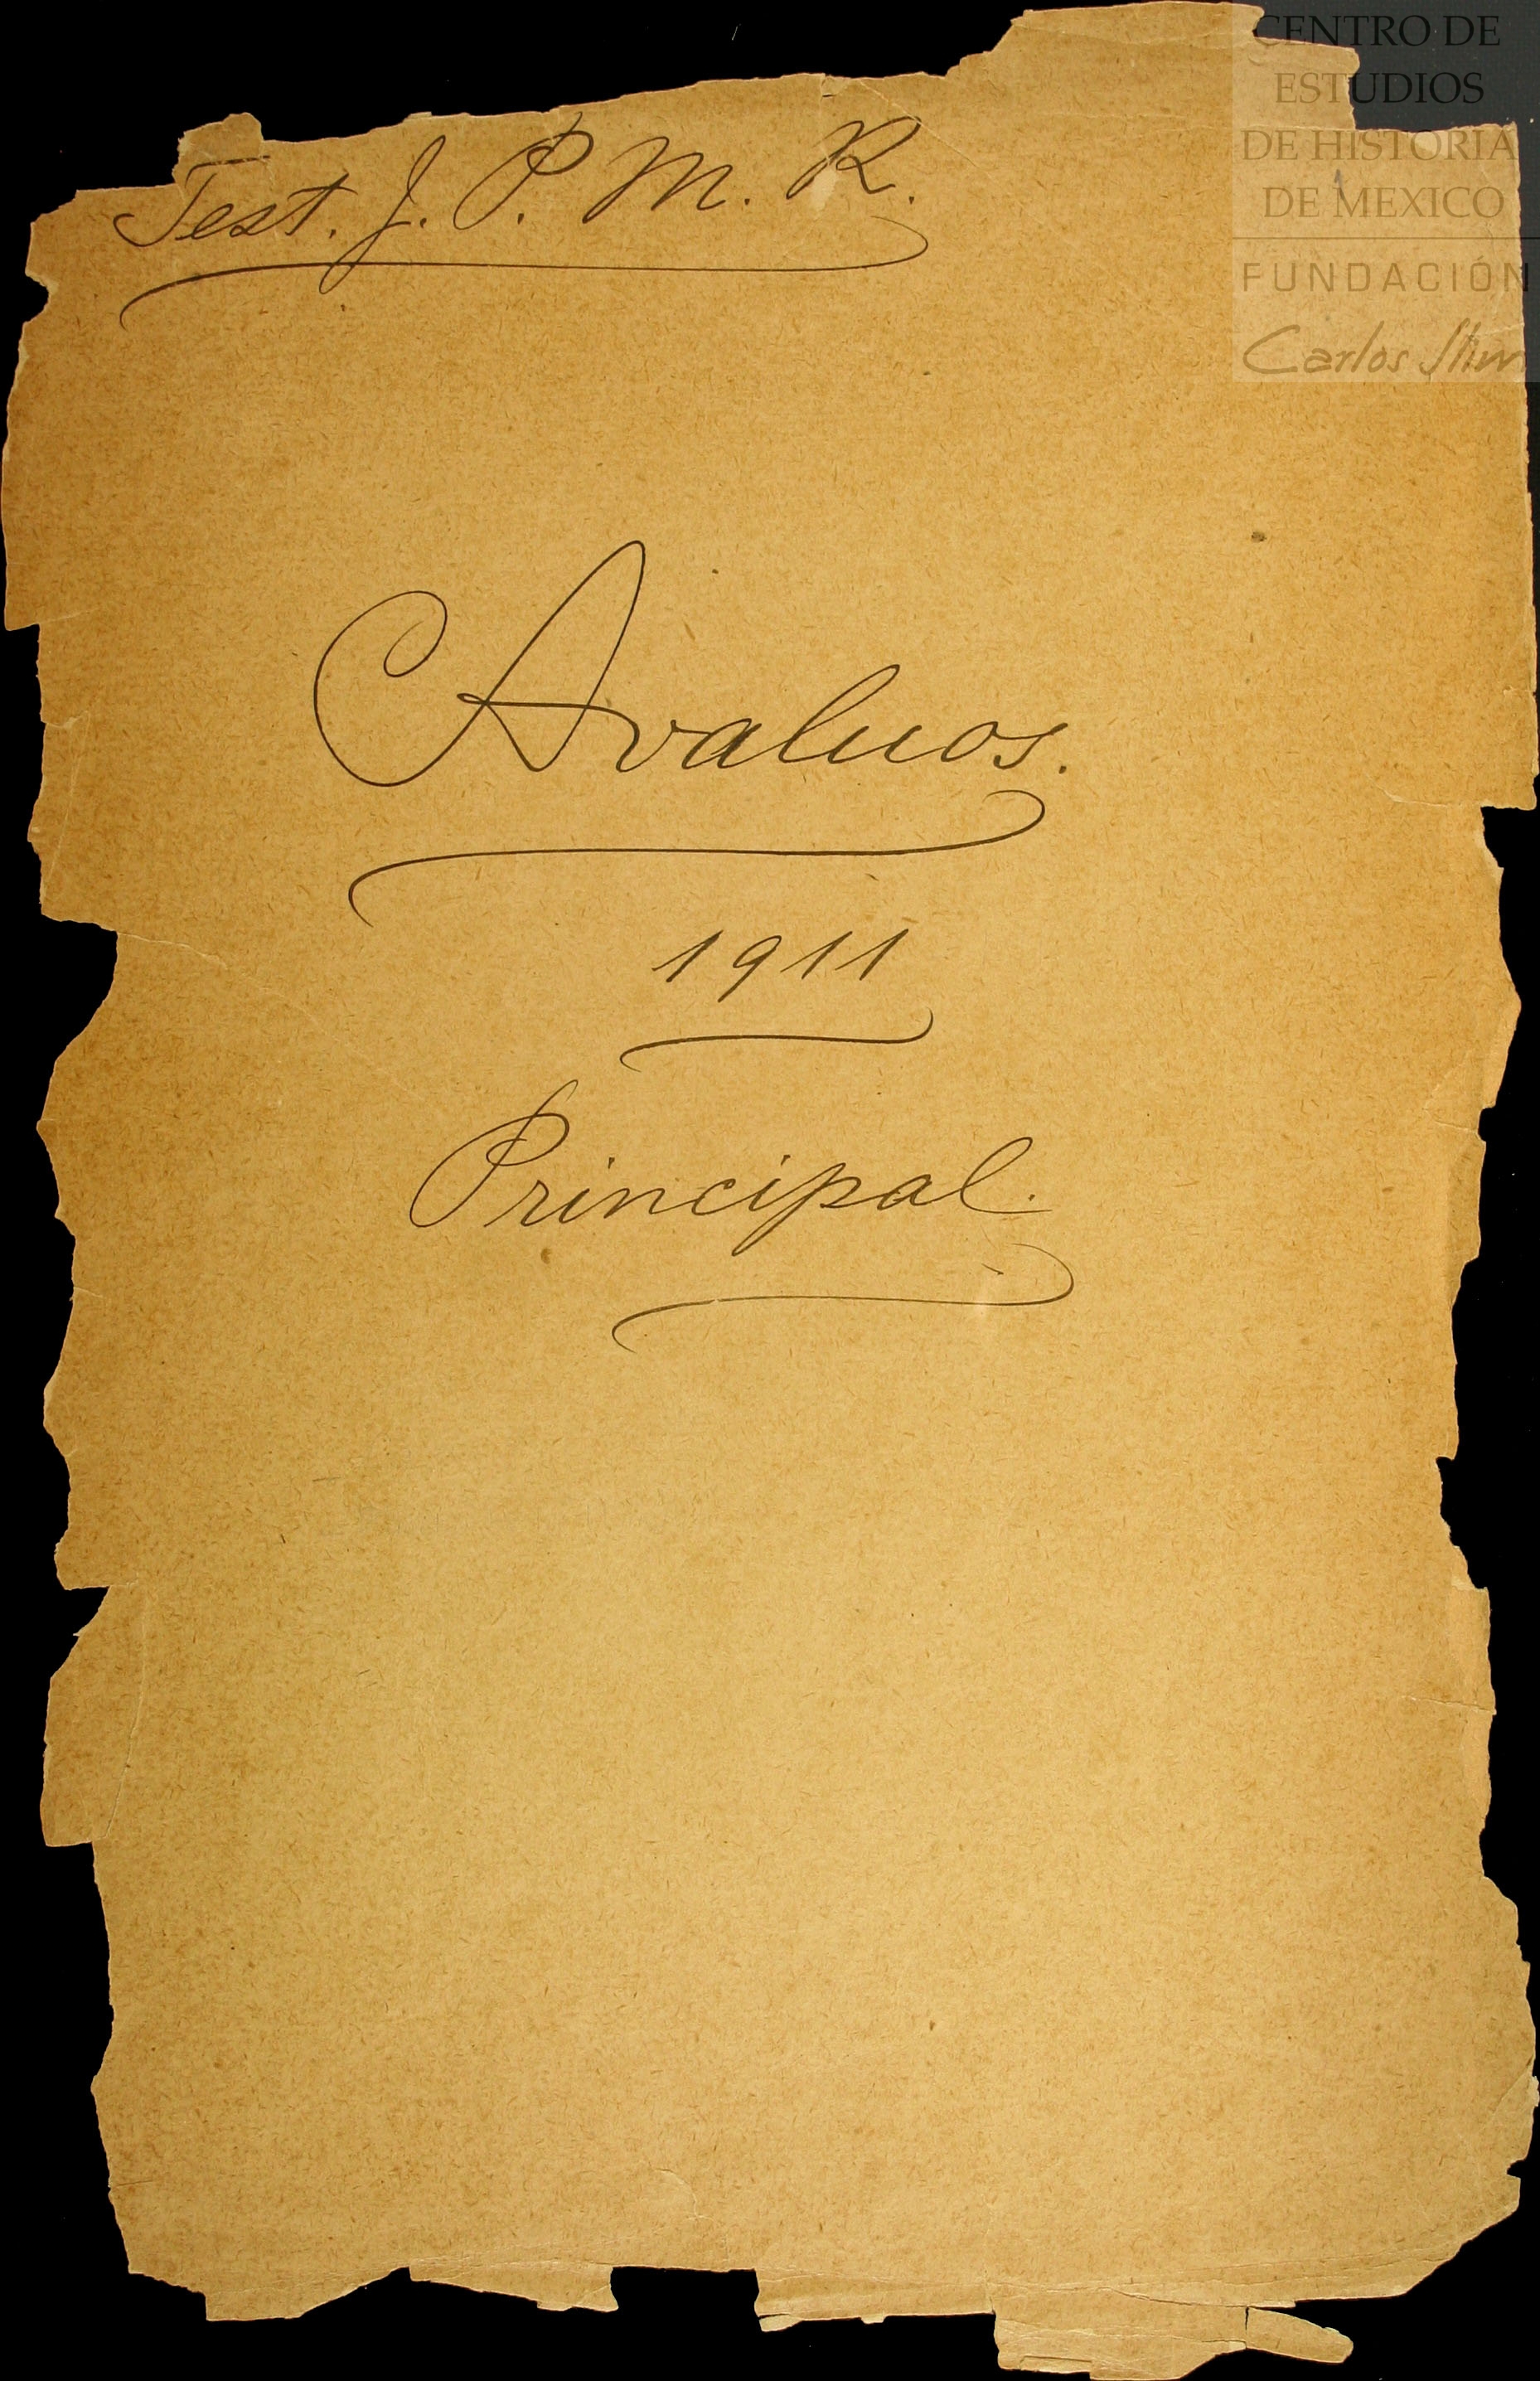 CENTRO DE
ESTUDIOS
DE HISTORIA
DE MEXICO
FUNDACIÓN
Carlos Slim
Test. J. P. M. R.
Avaluos.
1911
Principal.